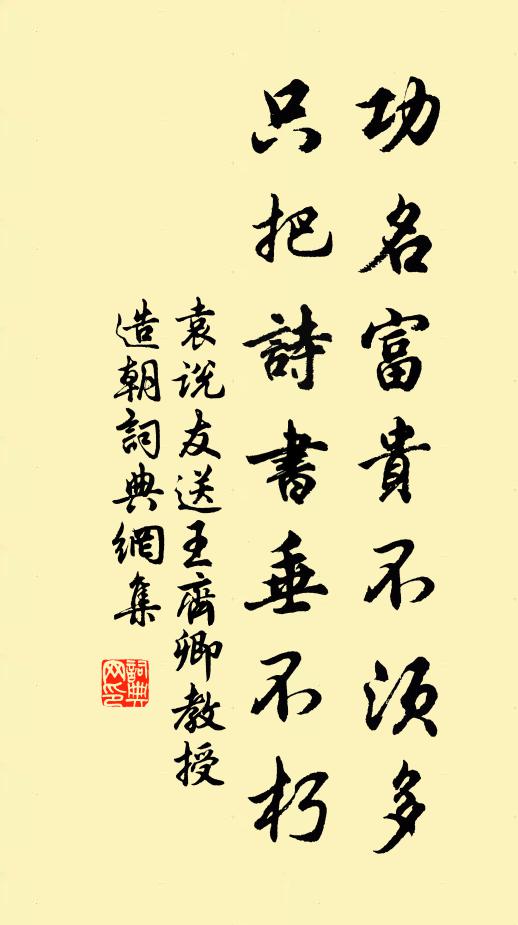 功名富貴不須多
只把詩書垂不朽
袁説友送王齊卿教授
造朝詞典網集
詞典网印